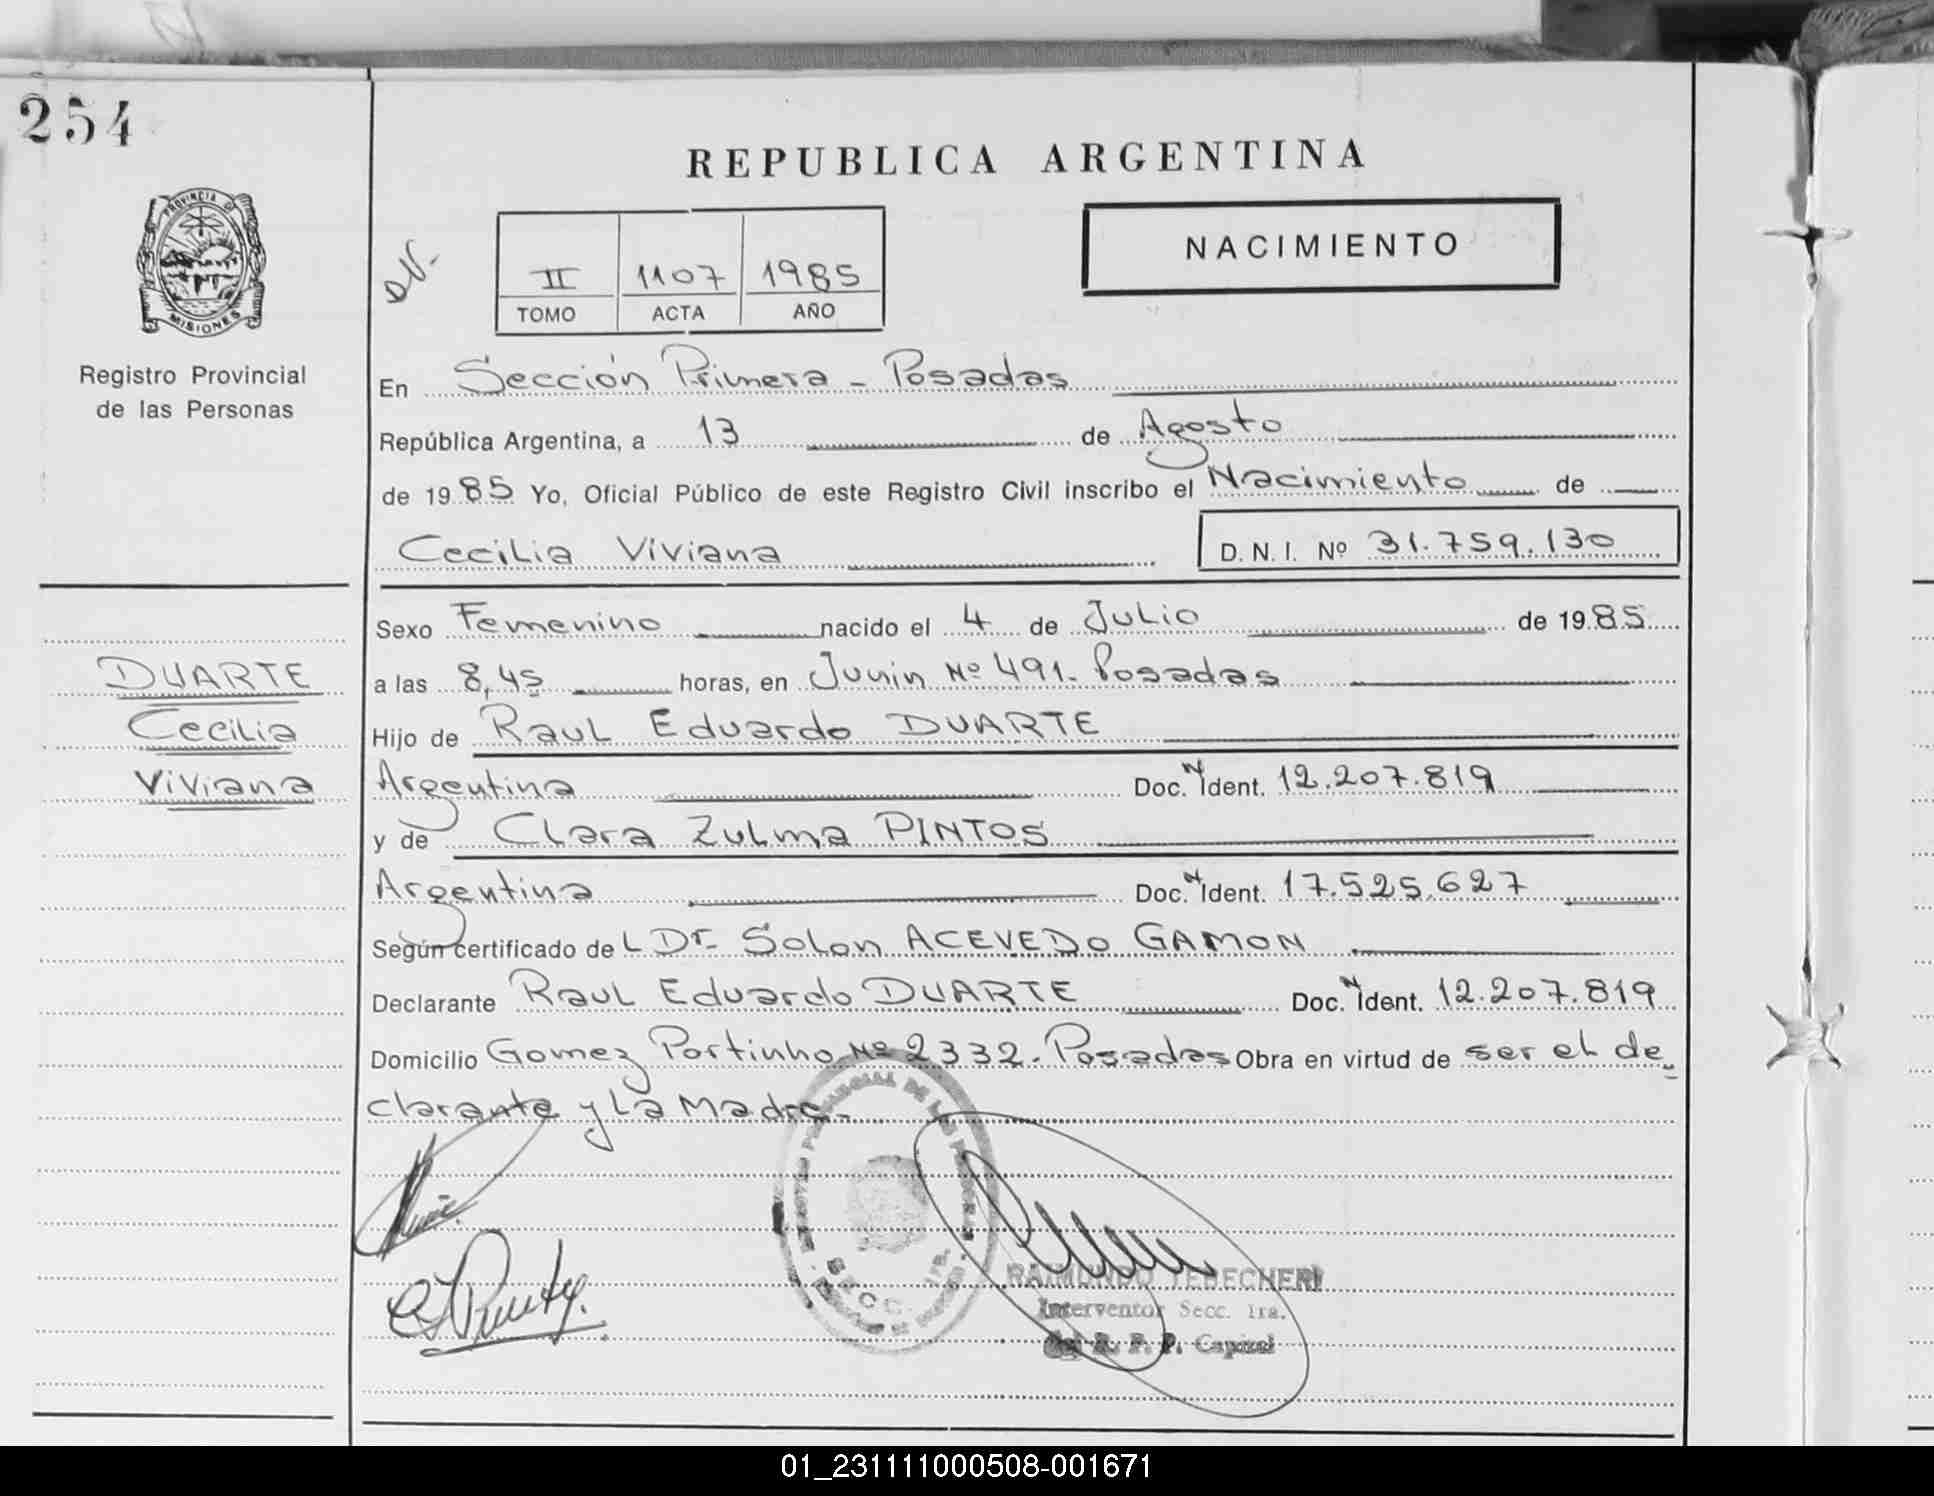 254
REPUBLICA ARGENTINA
PROVINCIA DE
MISIONES
Registro Provincial
de las Personas
II 1107 1985
TOMO ACTA AÑO
NACIMIENTO
En Sección Primera - Posadas
República Argentina, a 13 de Agosto
de 1985 Yo, Oficial Público de este Registro Civil inscribo el Nacimiento de
Cecilia Viviana D. N. I. Nº 31.759.130
Sexo Femenino nacido el 4 de Julio de 1985
a las 8,45 horas, en Junin Nº 491. Posadas
Hijo de Raul Eduardo DUARTE
Argentina Doc. N Ident. 12.207.819
y de Clara Zulma PINTOS
Argentina Doc. N Ident. 17.525.627
Según certificado del Dr. Solon ACEVEDO GAMON
Declarante Raul Eduardo DUARTE Doc. N Ident. 12.207.819
Domicilio Gomez Portinho Nº 2332. Posadas Obra en virtud de ser el de
clarante y la Madre.-
DUARTE
Cecilia
Viviana
SECC. 1ra.
RAIMUNDO TEBECHERI
Interventor Secc. 1ra.
del R. P. P. Capital
01_231111000508-001671